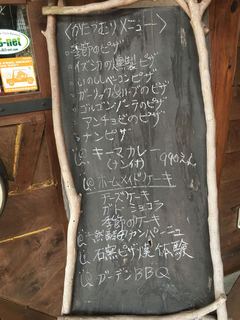 〈かたつむりメニュー〉
・季節のピザ
・イブシカの燻製ピザ
・いのししベーコンピザ
・ガーリック&ハーブのピザ
・ゴルゴンゾーラのピザ
・アンチョビのピザ
・ナンピザ
キーマカレー
(ナン付) 990えん
ホームメイドケーキ
チーズケーキ
ガトーショコラ
季節のケーキ
カンパーニュ
石窯ピザ焼体験
ガーデンBBQ